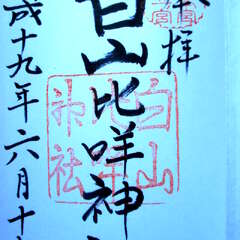 拝
白山比咩神
成十九年六月十
白山
神社